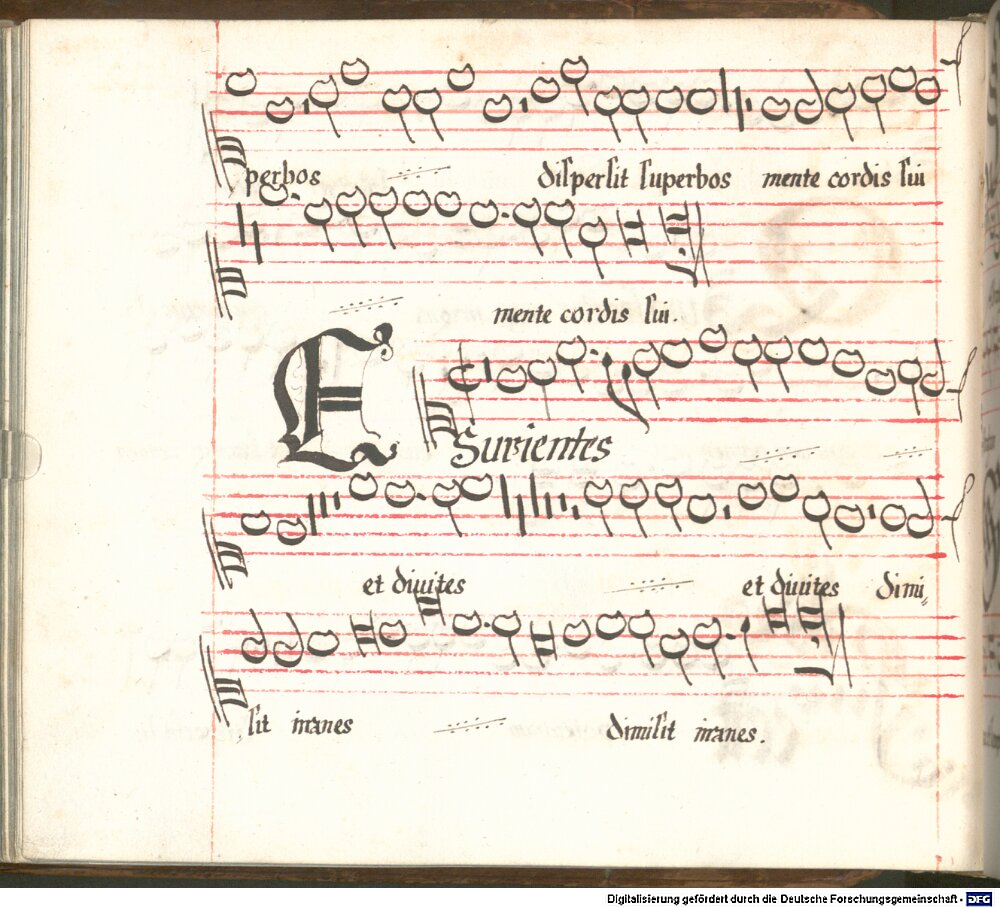 perbos diſperſit ſuperbos mente cordis ſui
mente cordis ſui.
ESurientes
et diuites et diuites dimi„
ſit inanes dimiſit inanes.
Digitalisierung gefördert durch die Deutsche Forschungsgemeinschaft - DFG